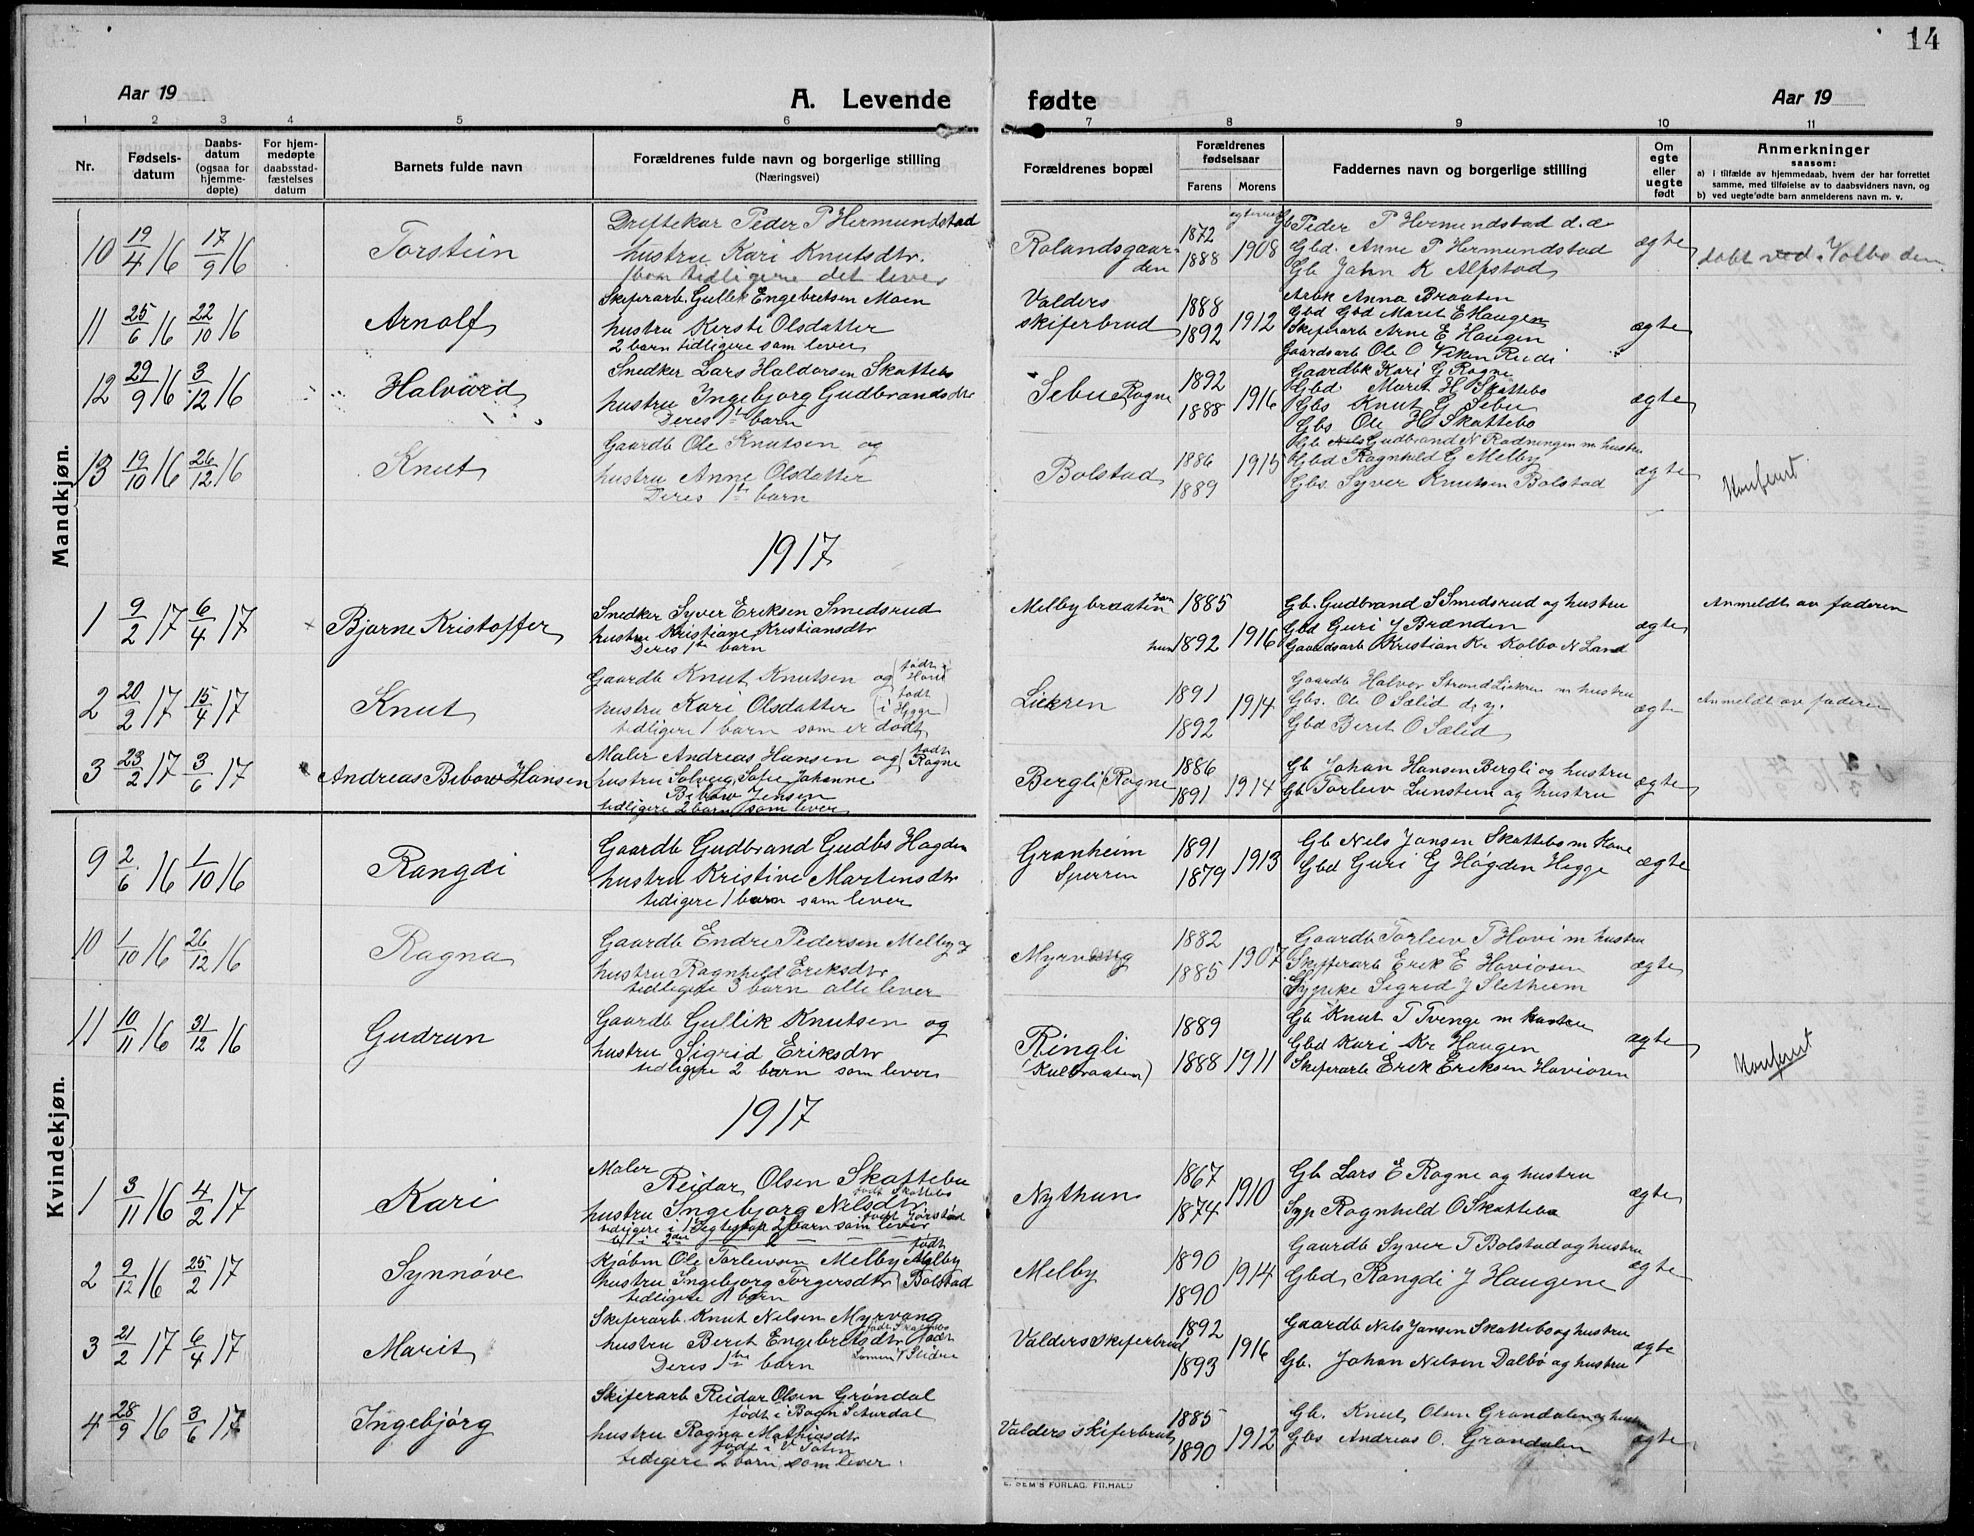 14
Aar 19
A. Levende
fødte
Aar 19
1 2 3 4 5 6 7 8 9 10 11
Nr.
Fødsels-
datum
Daabs-
datum
(ogsaa for
hjemme-
døpte)
For hjem-
medøpte
daabsstad-
fæstelses
datum
Barnets fulde navn
Forældrenes fulde navn og borgerlige stilling
(Næringsvei)
Forældrenes bopæl
Forældrenes
fødselsaar
Farens Morens
Faddernes navn og borgerlige stilling
Om
egte
eller
uegte
født
Anmerkninger
saasom:
a) i tilfælde av hjemmedaab, hvem der har forrettet
samme, med tilføielse av to daabsvidners navn, og
b) ved uegte fødte barn anmelderens navn m. v.
Mandkjøn.
10 19/4 16 17/9 16 Torstein
Driftekar Peder P Hermundstad
hustru Kari Knutsdtr.
1 barn tidligere det lever
Rolandsgaar
den
1872
1888 1908
Peder P Hermundstad d.æ
Gbd. Anne P Hermundstad
Gb Jahn K Alpstad
ægte
døbt ved Volbo den
11 25/6 16 22/10 16 Arnolf
Skiferarb. Gullik Engebretsen Moen
hustru Kersti Olsdatter
2 barn tidligere som lever
Valders
skiferbrud
1888
1892 1912
Arbk Anna Braaten
Gbd Gbd Marit E Haugen
Skiferarb Arne E Haugen
Gaardsarb Ole O Viken Rudi
ægte
12 29/9 16 3/12 16 Halvard
Snedker Lars Haldorsen Skattebo
hustru Ingebjørg Gudbrandsdtr
Deres 1te barn
Sebu Rogne
1892
1888 1916
Gaardbk Kari G Rogne
Gbd. Marit H Skattebo
Gbs Knut G Sebu
Gbs Ole H Skattebo
ægte
13 19/10 16 26/12 16 Knut
Gaardb Ole Knutsen og
hustru Anne Olsdatter
Deres 1te barn
Bolstad
1886
1889 1915
Gb Nils Gudbrand N Rødningen m hustru
Gbd Ragnhild G Melby
Gbs. Syver Knutsen Bolstad
ægte
1917
1 9/2 17 6/4 17 Bjarne Kristoffer
Snedker Syver Eriksen Smedsrud
hustru Kristiane Kristiansdtr
Deres 1te barn
Melbybraaten
1885
hun 1892 1916
Gb. Gudbrand S Smedsrud og hustru
Gbd Guri J Brænden
Gaardsarb Kristian Kr Kolbo N Land
ægte
Anmeldt av faderen
2 20/2 17 15/4 17 Knut
Gaardb Knut Knutsen og (født i
hustru Kari Olsdatter (født i Hegge)
tidligere 1 barn som er dødt
Liekren
1891
1892 1914
Gaardb Halvor Strand Liekren m hustru
Gbs. Ole O Sælid d.y.
Gbd Beret O Sælid
ægte
Anmeldt av faderen
3 23/2 17 3/6 17 Andreas Bibow Hansen
Maler Andreas Hansen og (født Rogne
hustru Solveig Sofie Johanne
Bibow Jensen
tidligere 2 barn som lever
Bergli (Rogne
1886
1891 1914
Gb Johan Hansen Bergli og hustru
Gb Torleiv Lunstein og hustru
ægte
Kvindekjøn.
9 2/6 16 1/10 16 Rangdi
Gaardb Gudbrand Gudbs Høgden
hustru Kristine Martensdtr
tidligere 1 barn som lever
Granheim
Sperren
1891
1879 1913
Gb Nils Jansen Skattebo m Kone
Gbd Guri G Høgden Hegge
ægte
10 1/10 16 26/12 16 Ragna
Gaardb Endre Pedersen Melby og
hustru Ragnhild Eriksdtr
tidligere 3 barn alle lever
Myrvang
1882
1885 1907
Gaardb Torleiv T Hovi m hustru
Skifferarb Erik E Haviosen
Sypike Sigrid J Sletheim
ægte
11 10/11 16 31/12 16 Gudrun
Gaardb Gullik Knutsen og
hustru Sigrid Eriksdtr
tidligere 2 barn som lever
Ringli
(Kulbraaten)
1889
1888 1911
Gb Knut T Tvenge m hustru
Gbd Kari Kr Haugen
Skiferarb Erik Eriksen Haviosen
ægte
1917
1 3/11 16 4/2 17 Kari
Maler Reidar Olsen Skattebu
født Skattebo
hustru Ingebjørg Nilsdtr
tidligere i 1 Ægteskap 2 barn som lever
Nythun
1867
1874 1910
Gb Lars E Rogne og hustru
Syp Ragnhild O Skattebo
ægte
2 9/12 16 25/2 17 Synnøve
Kjøbm Ole Torleivsen Melby født Melby
hustru Ingebjørg Torgersdtr (Bolstad
tidligere 1 barn
Melby
1890
1890 1914
Gaardb Syver T Bolstad og hustru
Gbd Rangdi J Haugene
ægte
3 21/2 17 6/4 17 Marit
Skiferarb. Knut Nilsen Myrvang
født Skattebo
hustru Berit Engebretsdtr født
Deres 1te barn Lomen V Slidre
Valders skiferbrud
1892
1893 1916
Gaardb Nils Jansen Skattebo og hustru
Gb. Johan Nilsen Dalbø og hustru
ægte
4 28/9 16 3/6 17 Ingebjørg
Skiferarb Reidar Olsen Grøndal
født i Bagn
hustru Ragna Mathiasdtr
født i V Toten
tidligere 2 barn som lever.
Valders skiferbrud
1885
1890 1912
Gb. Knut Olsen Grøndalen og hustru
Gbs Andreas O. Grøndalen
ægte
E. SEM'S FORLAG, FR.HALD